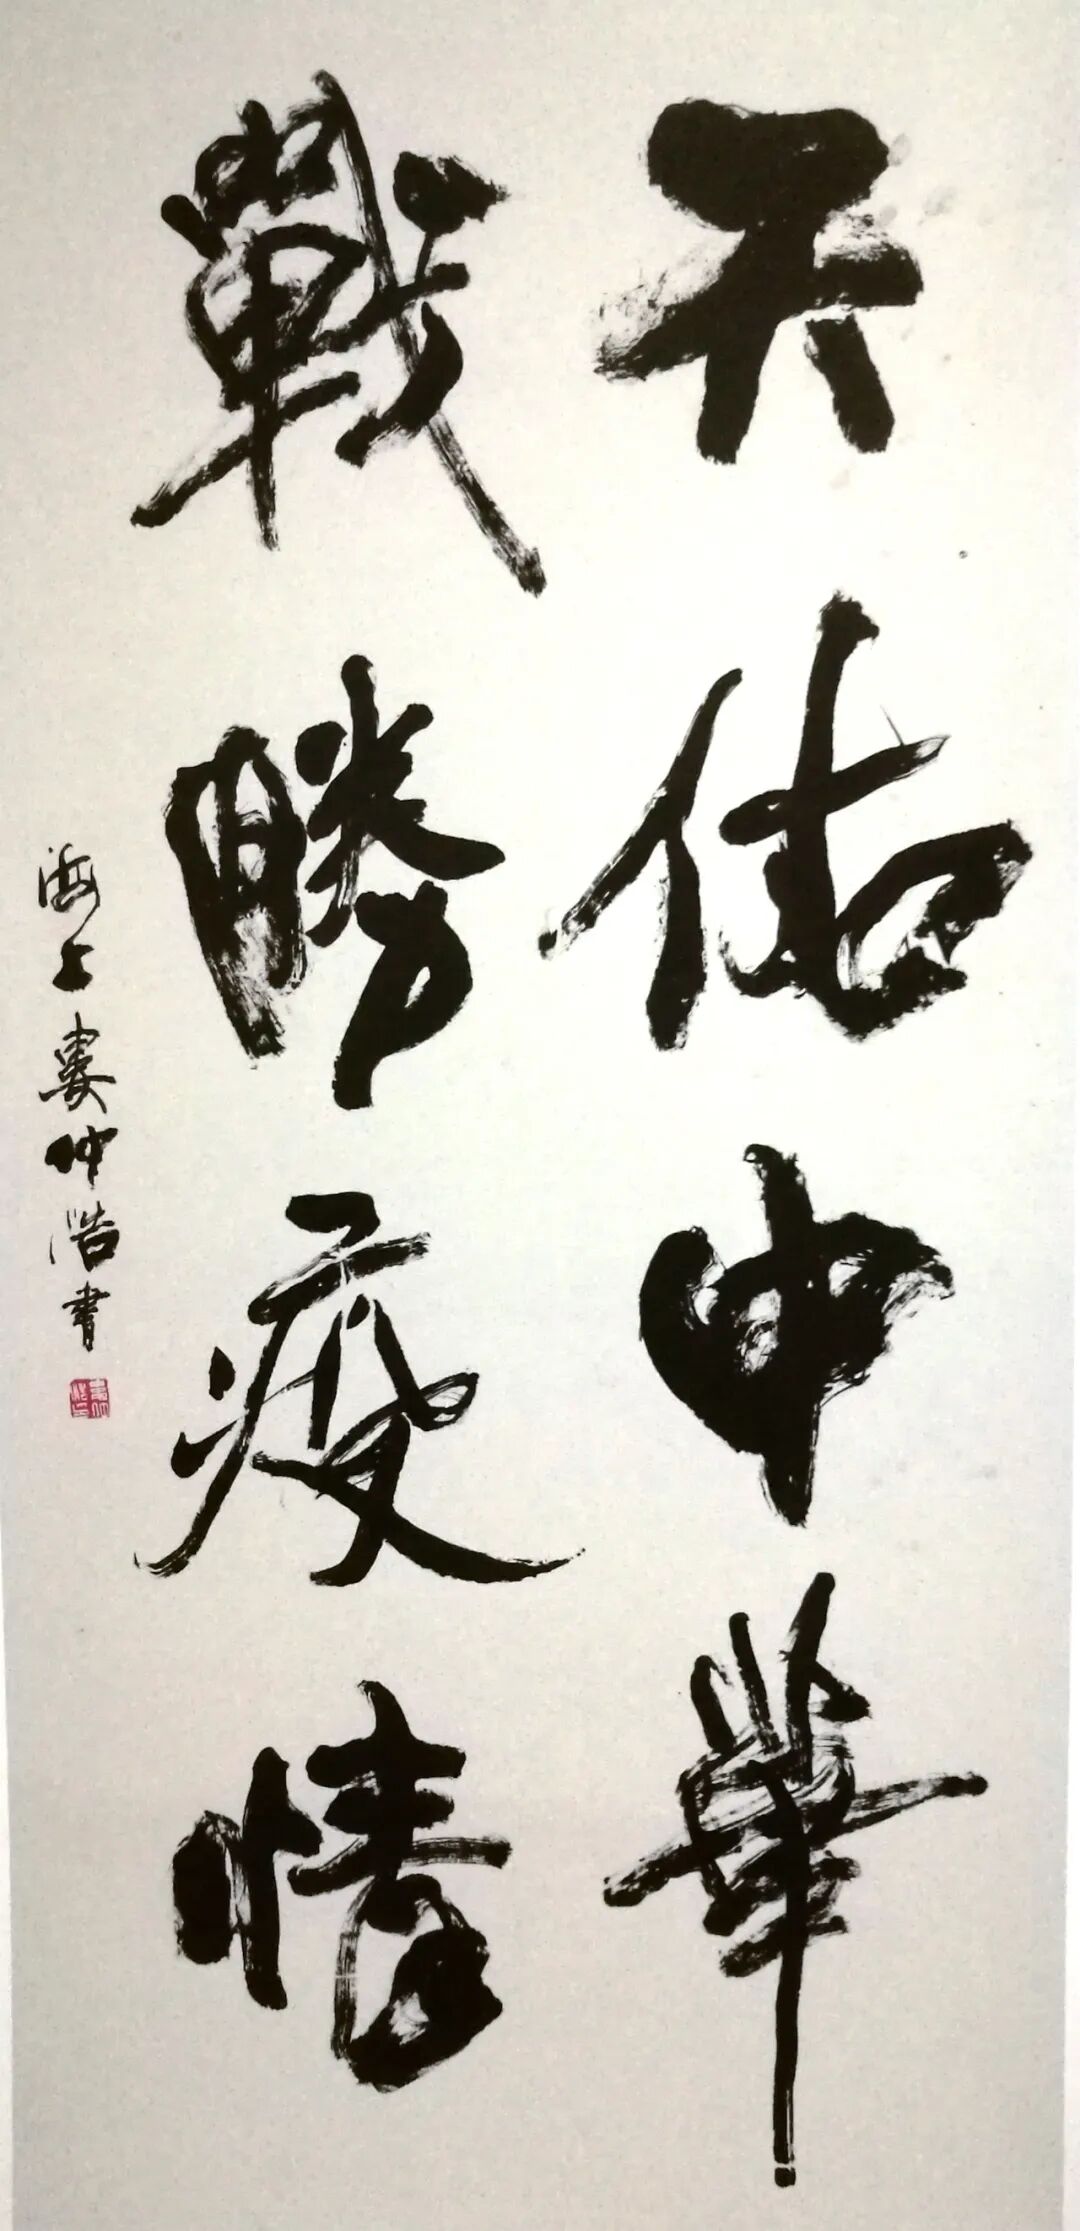 天佑中華
戰勝疫情
海上婁仲浩書